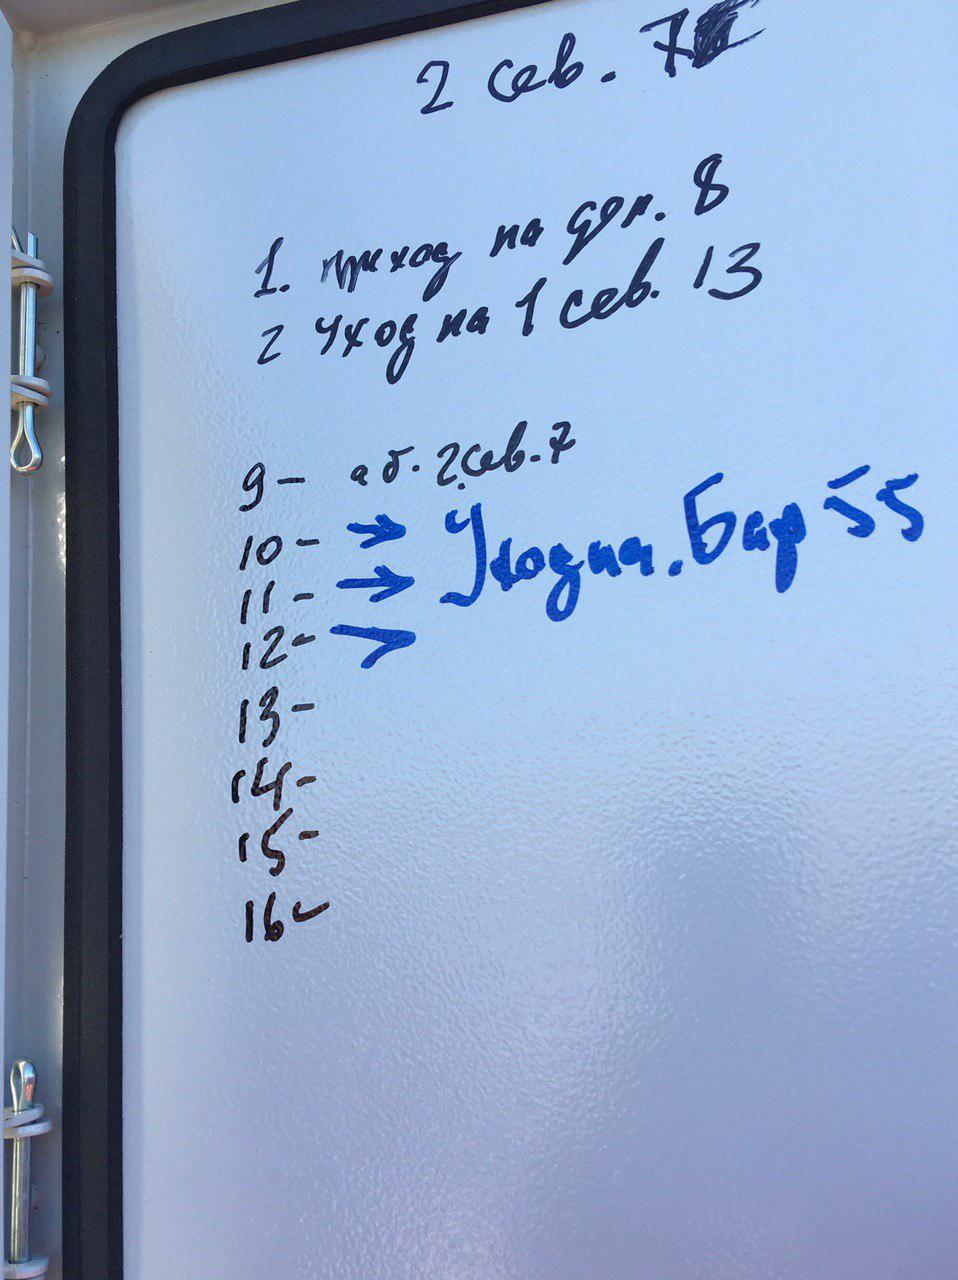 2 сев. 7
1. приход на фрл. 8
2 Уход на 1 сев. 13
9- аб. 2 сев. 7
10- → Уход на. Бар 55
11- →
12- >
13-
14-
15-
16-